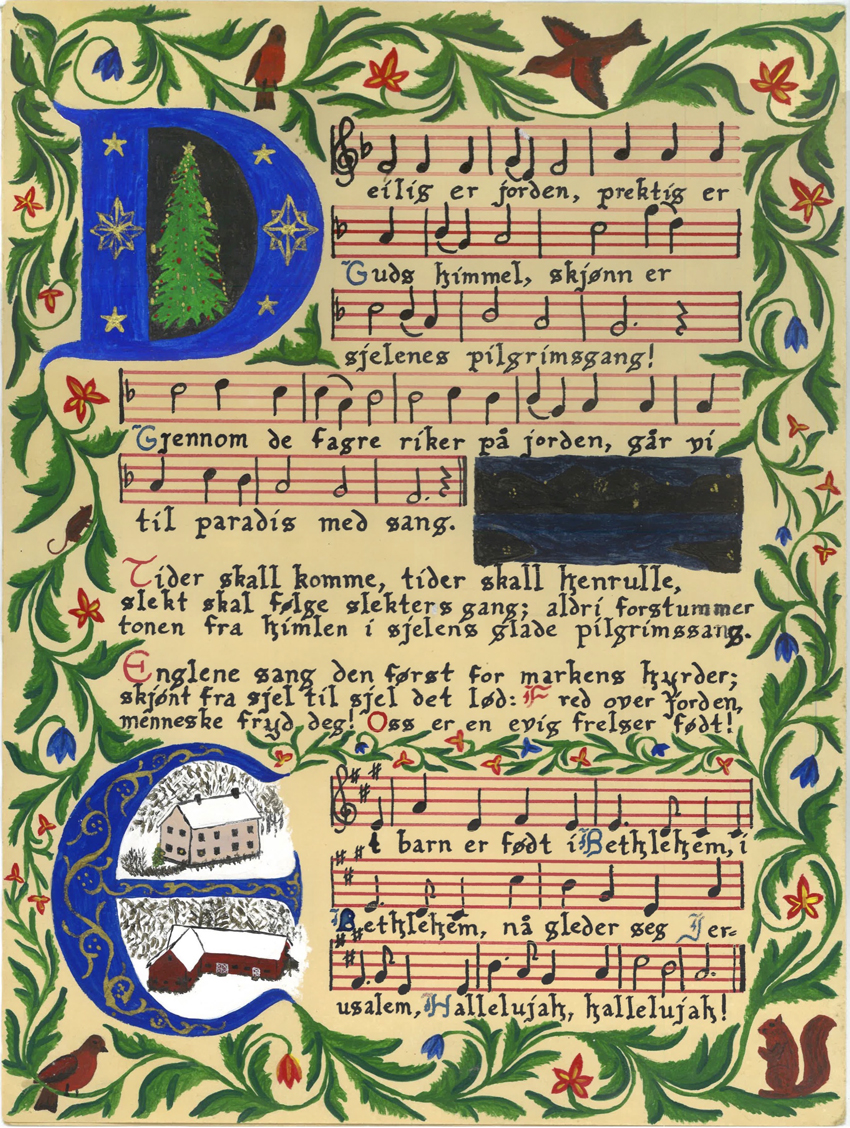 Deilig er jorden, prektig er
Guds himmel, skjønn er
sjelenes pilgrimsgang!
Gjennom de fagre riker på jorden, går vi
til paradis med sang.
Tider skall komme, tider skall henrulle,
slekt skal følge slekters gang; aldri forstummer
tonen fra himlen i sjelens glade pilgrimssang.
Englene sang den først for markens hyrder;
skjønt fra sjel til sjel det lød: Fred over jorden,
menneske fryd deg! Oss er en evig frelser født!
Et barn er født i Bethlehem, i
Bethlehem, nå gleder seg Jer=
usalem, Hallelujah, hallelujah!